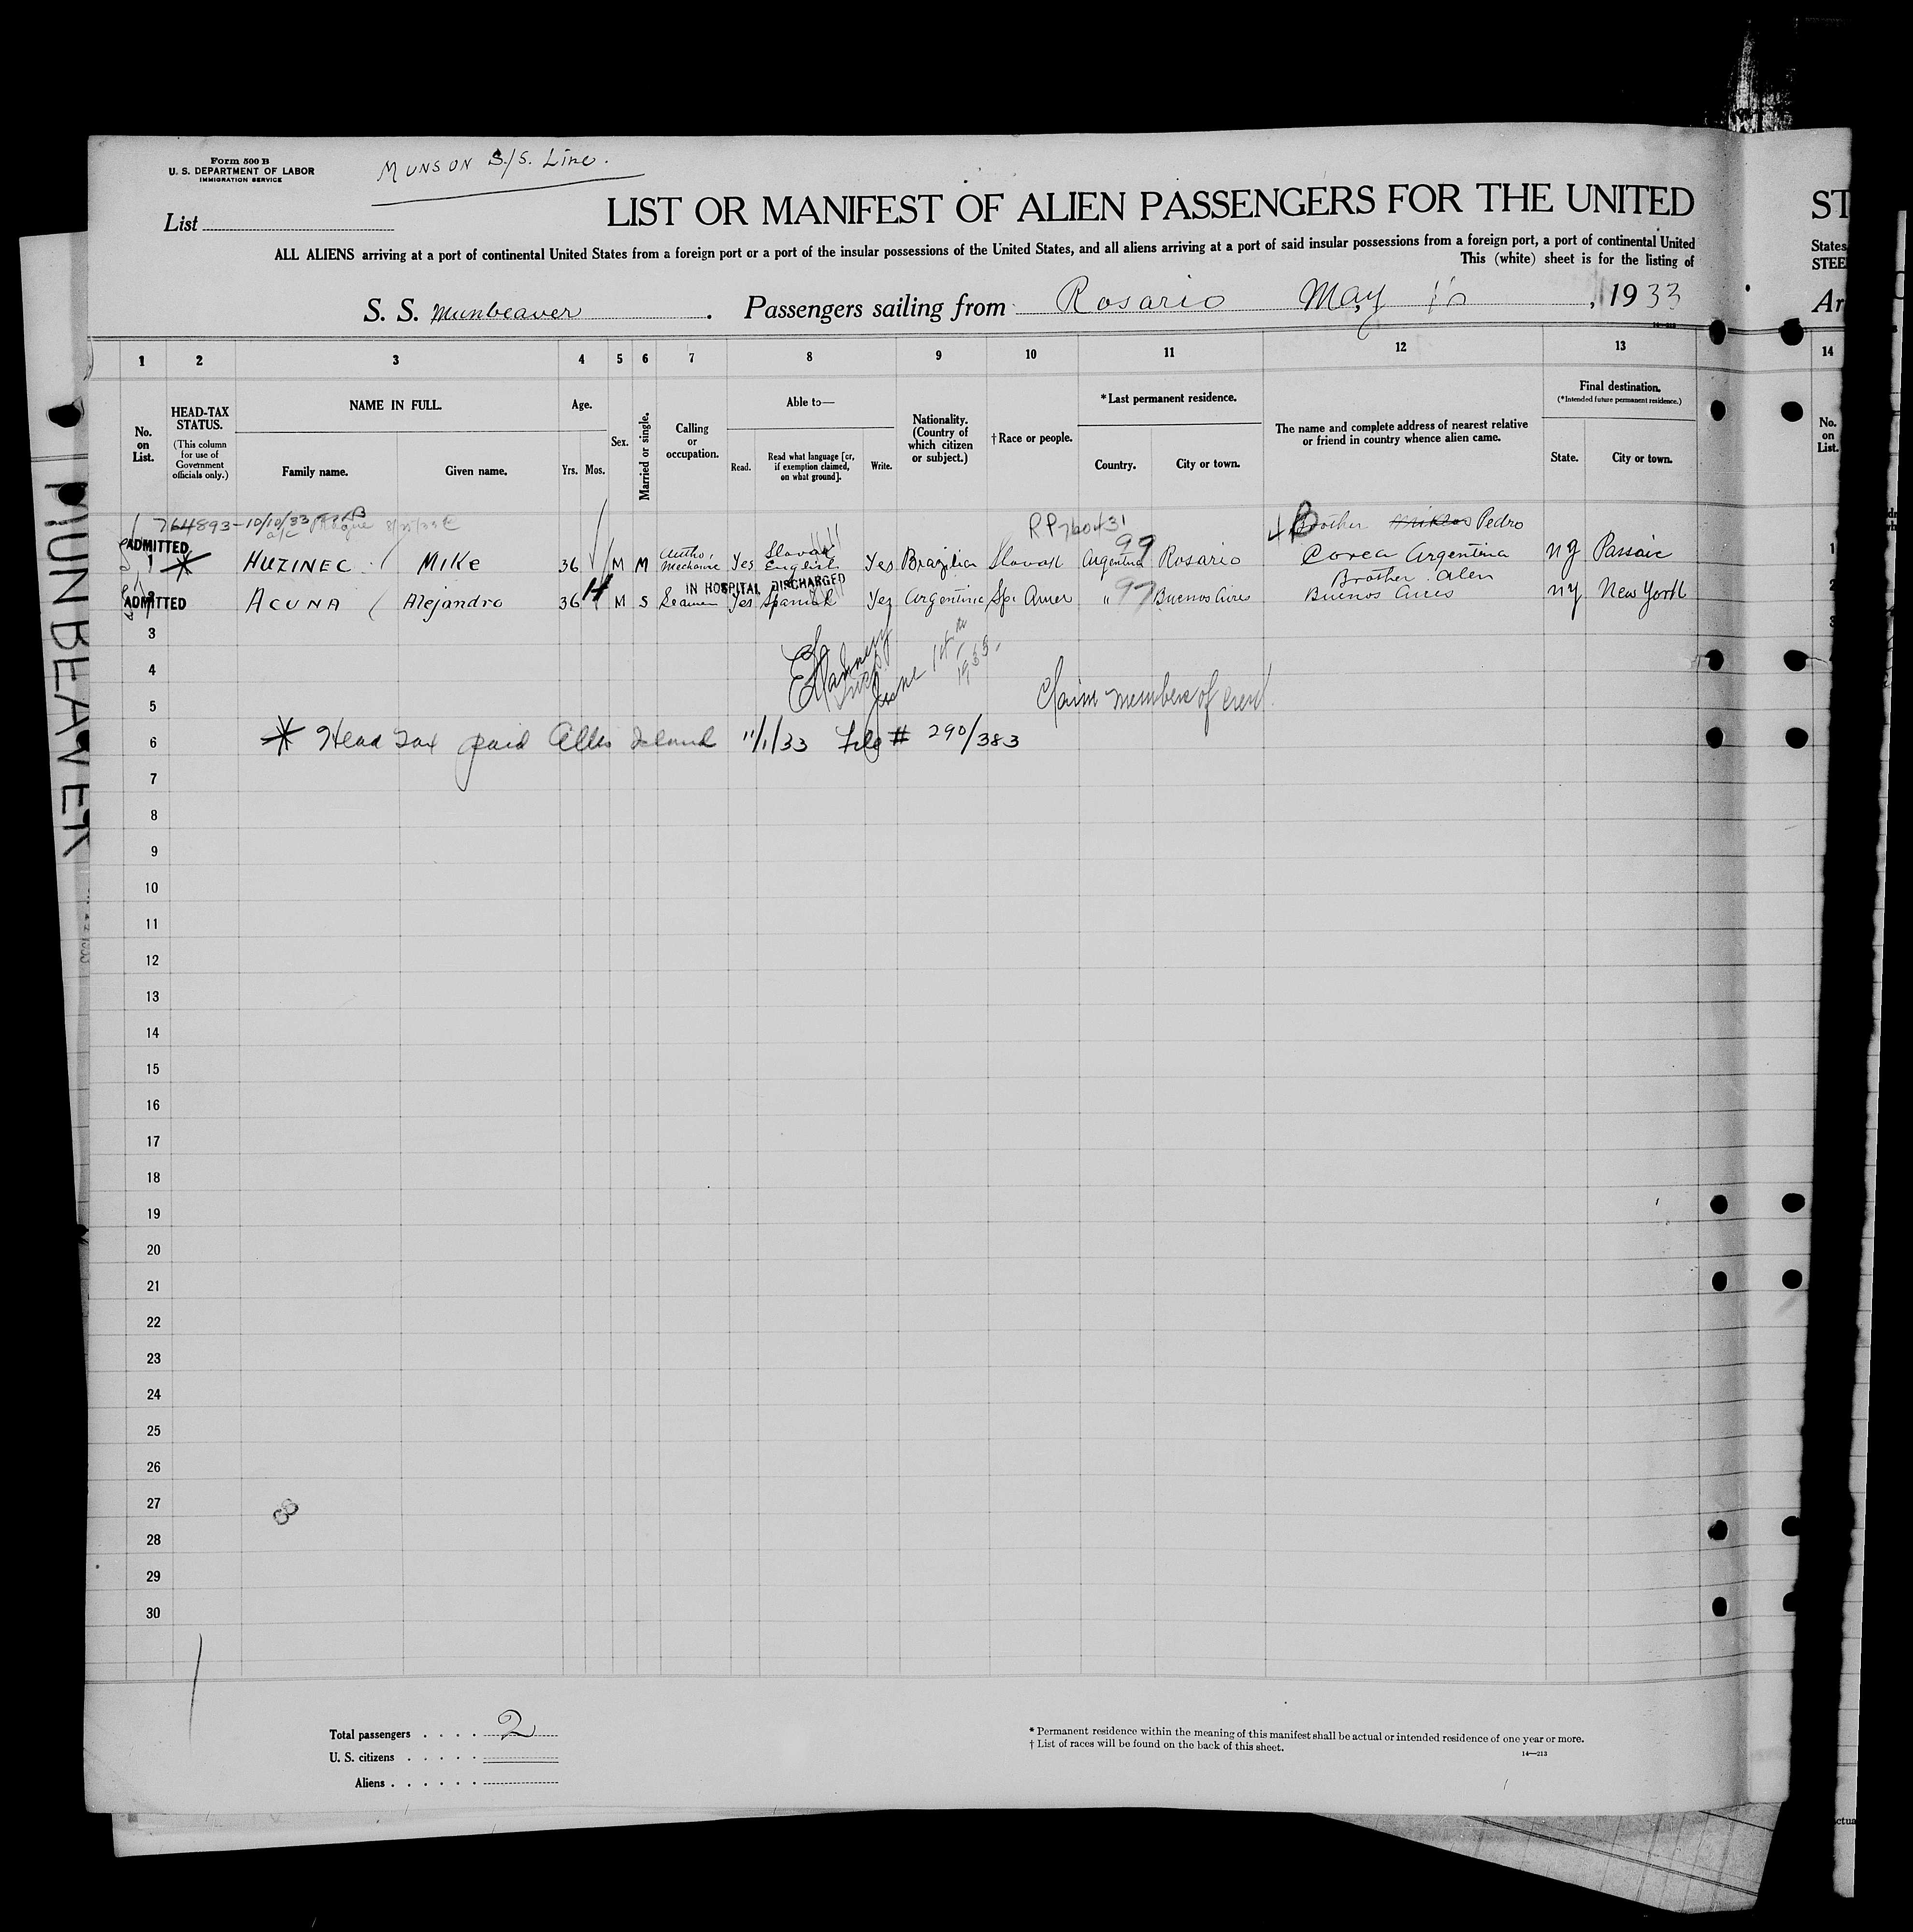 Form 500 B
U. S. DEPARTMENT OF LABOR
IMMIGRATION SERVICE
MUNSON S/S. Line.
List
LIST OR MANIFEST OF ALIEN PASSENGERS FOR THE UNITED
ST
ALL ALIENS arriving at a port of continental United States from a foreign port or a port of the insular possessions of the United States, and all aliens arriving at a port of said insular possessions from a foreign port, a port of continental United
States
This (white) sheet is for the listing of
STEE
S. S. Munbeaver. Passengers sailing from Rosario May 1933
Ar
14—213
1 2 3 4 5 6 7 8 9 10 11 12 13
14
No. on List.
HEAD-TAX STATUS.
(This column for use of Government officials only.)
NAME IN FULL.
Family name.
Given name.
Age.
Yrs. Mos.
Sex.
Married or single.
Calling or occupation.
Able to—
Read.
Read what language [or, if exemption claimed, on what ground].
Write.
Nationality. (Country of which citizen or subject.)
†Race or people.
*Last permanent residence.
Country.
City or town.
The name and complete address of nearest relative or friend in country whence alien came.
Final destination.
(*Intended future permanent residence.)
State.
City or town.
No. on List.
764893-10/10/33
RP760431
Brother Miklos Pedro
ADMITTED
1 HUZINEC MIKE 36 M M Auto. Mechanic Yes Slovak English Yes Brazilian Slovak Argentina 99 Rosario Corea Argentina NJ Passaic
IN HOSPITAL DISCHARGED
Brother Alen
ADMITTED
ACUNA Alejandro 36 M S Seaman Yes Spanish Yes Argentine Sp. Amer " 97 Buenos Aires Buenos Aires NY New York
3
4
June 14th 1933.
5
Claim members of crew
6
* Head Tax paid Ellis Island 11/1/33 File # 290/383
7
8
9
10
11
12
13
14
15
16
17
18
19
20
21
22
23
24
25
26
27
28
29
30
Total passengers . . . . 2
U. S. citizens . . . . .
Aliens . . . . . .
* Permanent residence within the meaning of this manifest shall be actual or intended residence of one year or more.
† List of races will be found on the back of this sheet.
14—213
MUNBEAVER